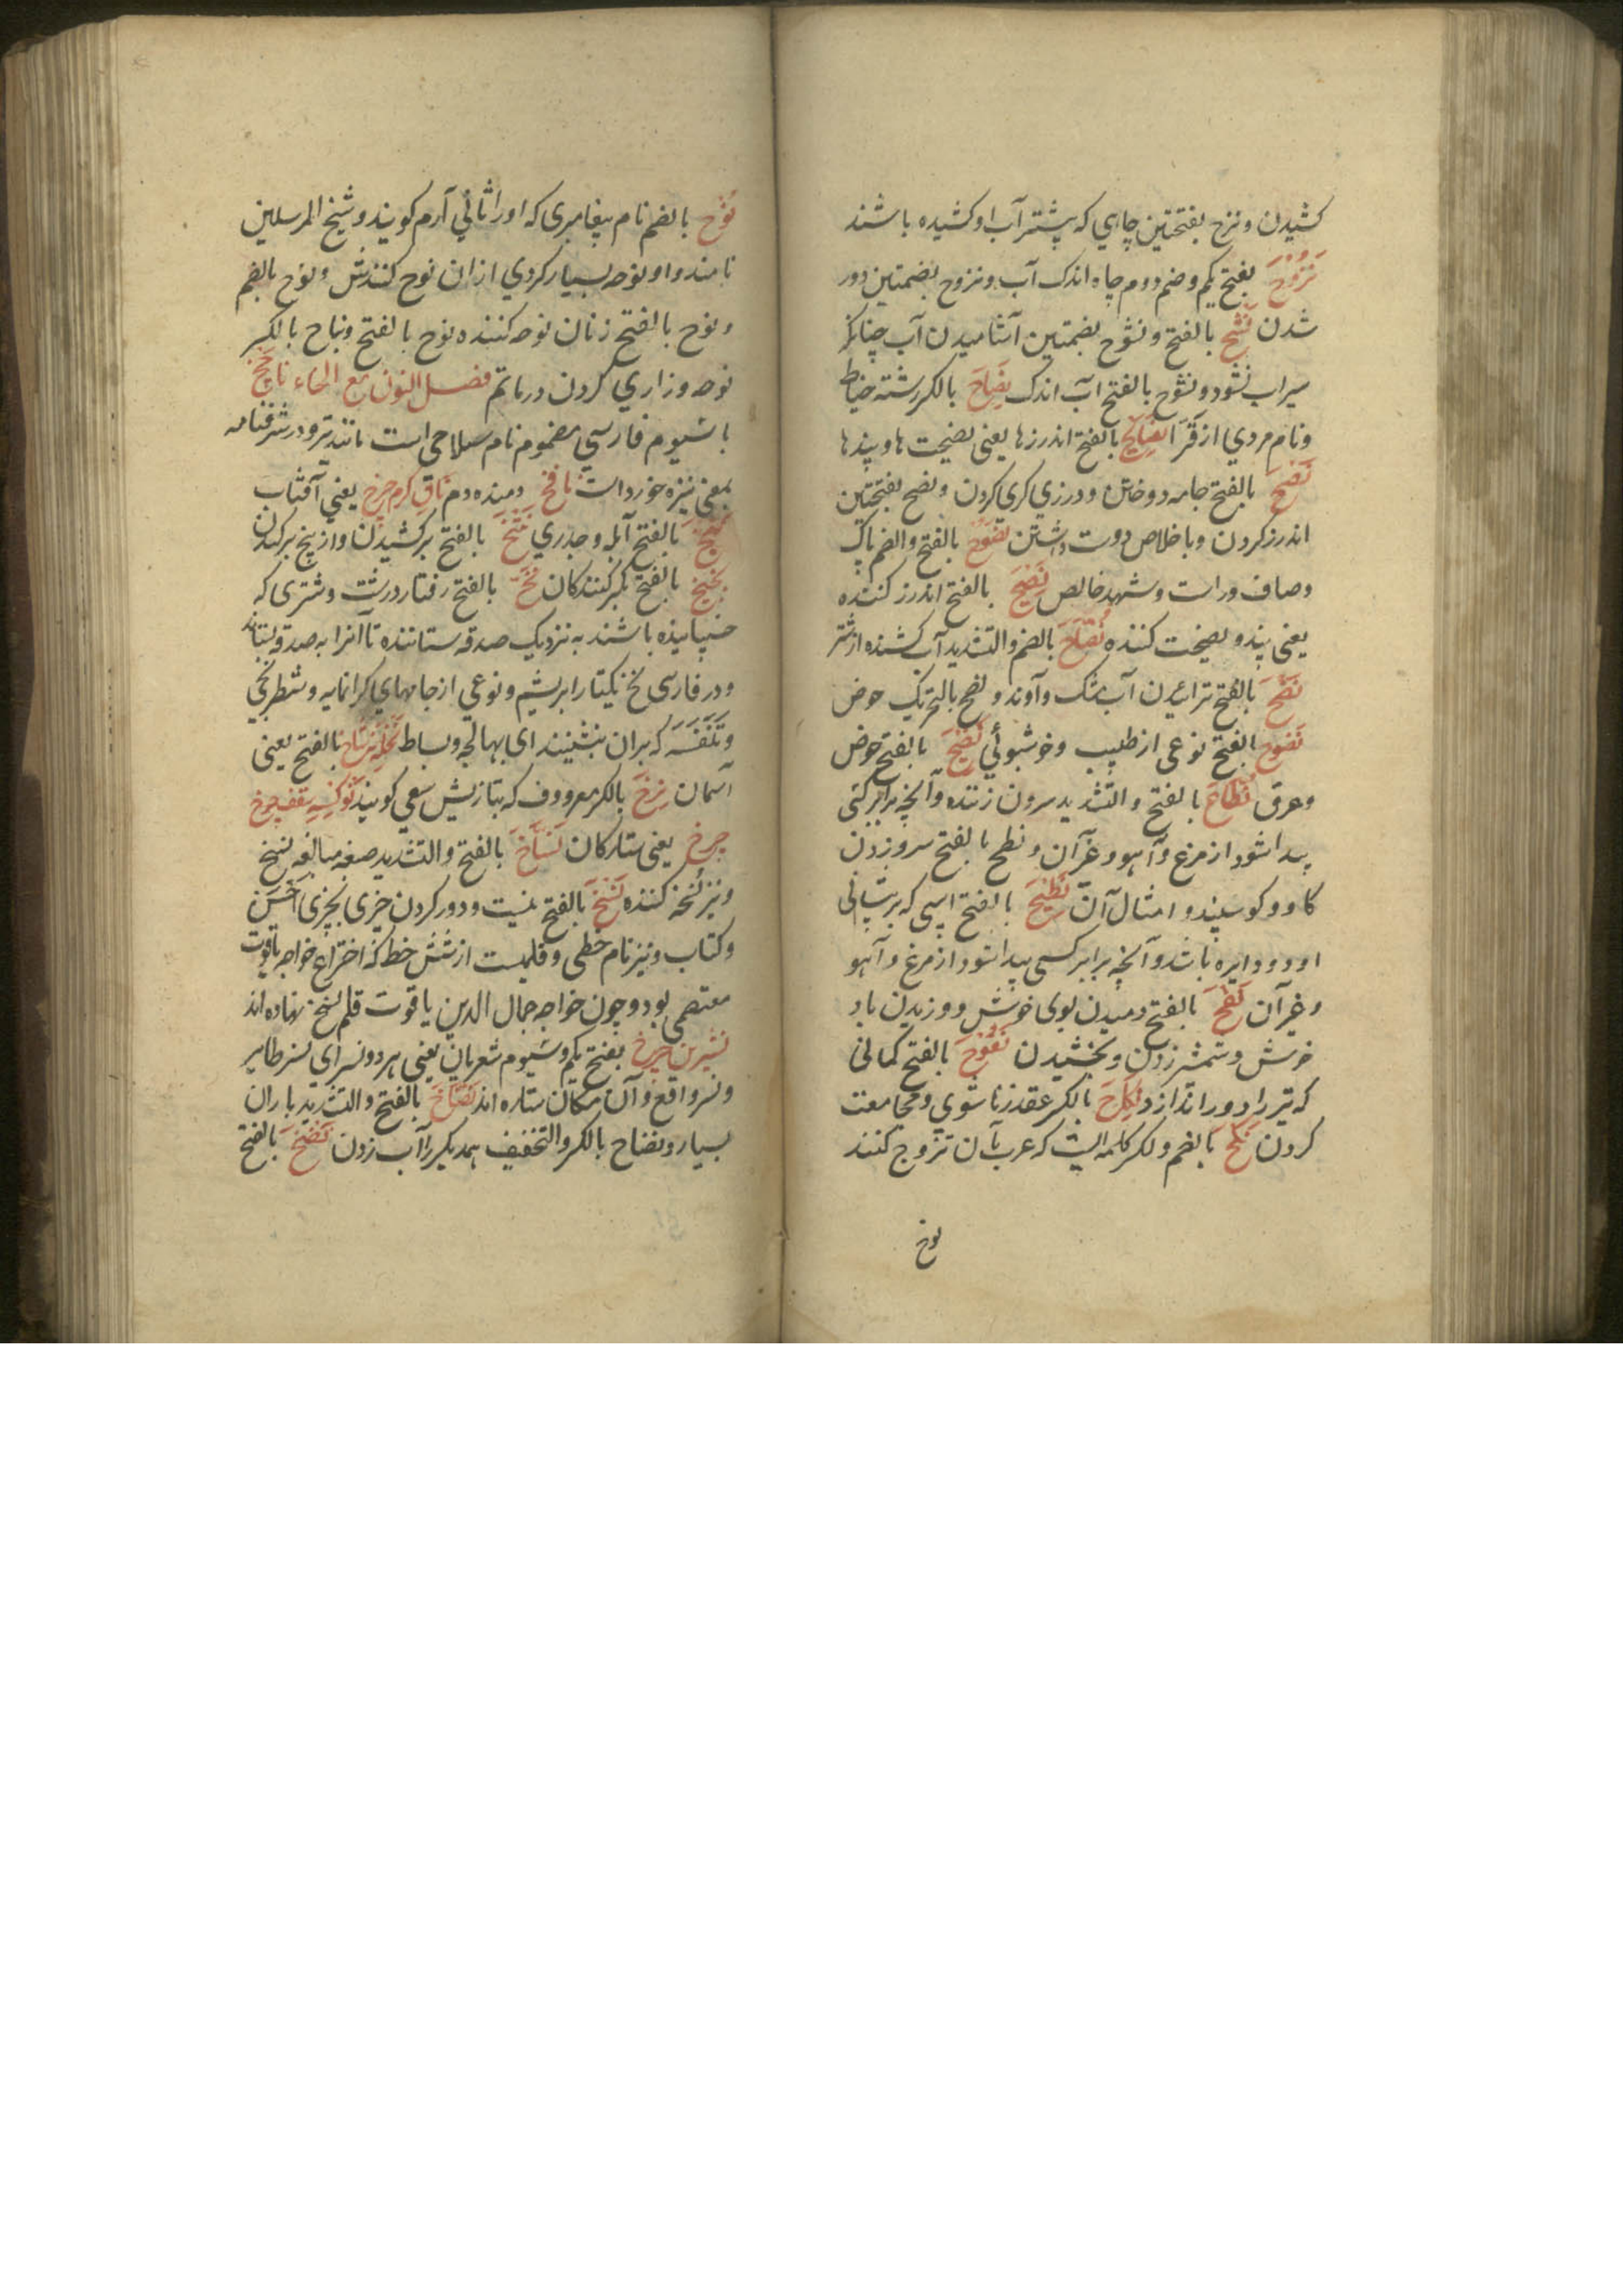 کشیدن ونزح بفتحتین چاهی که پیشتر آب او کشیده باشند
نزوح بفتح یکم وضم دوم چاه اندک آب ونزوح بضمتین دور
شدن نشح بالفتح ونشوح بضمتین آشامیدن آب چنانکه
سیراب نشود ونشوح بالفتح آب اندک نصاح بالکسر رشته خیاط
ونام مردی از قرا نصایح بالفتح اندرزها یعنی نصیحت ها وپندها
نصح بالفتح جامه دوختن ودرزی کری کردن ونصح بفتحتین
اندرز کردن وباخلاص دوست داشتن نصوح بالفتح والضم پاک
وصاف وراست وشهد خالص نصیح بالفتح اندرز کننده
یعنی پند ونصیحت کننده نضاح بالضم والتشدید آب کشنده از شتر
نضح بالفتح ترائیدن آب مشک وآوند ونضح بالتحریک حوض
نضوح بالفتح نوعی از طیب وخوشبوئی نضیح بالفتح حوض
وعرق نطاح بالفتح والتشدید سرون زننده وآنچه برابر کسی
پیدا شود از مرغ وآهو وغیر آن ونطح بالفتح سرو زدن
کاو وکوسپند وامثال آن نطیح بالفتح اسپی که بر پیشانی
او دو دایره باشد وآنچه برابر کسی پیدا شود از مرغ وآهو
وغیر آن نفح بالفتح دمیدن بوی خوش ووزیدن باد
خوش وشمشیر زدن وبخشیدن نفوح بالفتح کمانی
که تیر را دور اندازد نکاح بالکسر عقد زناشوی ومجامعت
کردن نکح بالضم ولکسر کلمه ایست که عرب بآن تزوج کنند
نوح
نوح بالضم نام پیغامبری که او را ثانی آدم کویند وشیخ المرسلین
نامند واو نوحه بسیار کردی ازان نوح کنندش ونوح بالضم
ونوح بالفتح زنان نوحه کننده نوح بالفتح ونیاح بالکسر
نوحه وزاری کردن در ماتم فصل النون مع الخاء ناچخ
با شیوم فارسی مضموم نام سلاحی است مانند تبر ودر شرفنامه
بمعنی نیزه خورد است نافخ دمنده دم ناف کرم چرخ یعنی آفتاب
نبخ بالفتح آبله وجدری نتخ بالفتح برکشیدن واز بیخ برکندن
بالفتح تکبر کنندکان نخ بالفتح رفتار درشت وشتری که
خسپانیده باشند به نزدیک صدقه ستاننده تا آنرا به صدقه بستاند
ودر فارسی نخ یکتا را بریشم ونوعی از جامهای کرانمایه وشطرنجی
وتنفسه که بران بنشینند ای نهالجه وبساط بالفتح یعنی
آسمان نرخ بالکسر معروف که بتازیش سعر کویند سقف چرخ
چرخ یعنی ستارکان نساخ بالفتح والتشدید صیغه مبالغه نسخ
ونیز نسخه کننده نسخ بالفتح نیست ودور کردن چیزی بچیزی احسن
وکتاب ونیز نام خطی وقلمیست از شش خط که اختراع خواجه یاقوت
معتصمی بود وچون خواجه جمال الدین یاقوت قلم نسخ نهاده اند
نسرین چرخ بفتح یکم وسیوم شعریان یعنی هر دو نسر ای نسر طایر
ونسر واقع وآن مکان ستاره اند نضاخ بالفتح والتشدید باران
بسیار ونضاح بالکسر والتخفیف همدیکر را آب زدن نضخ بالفتح